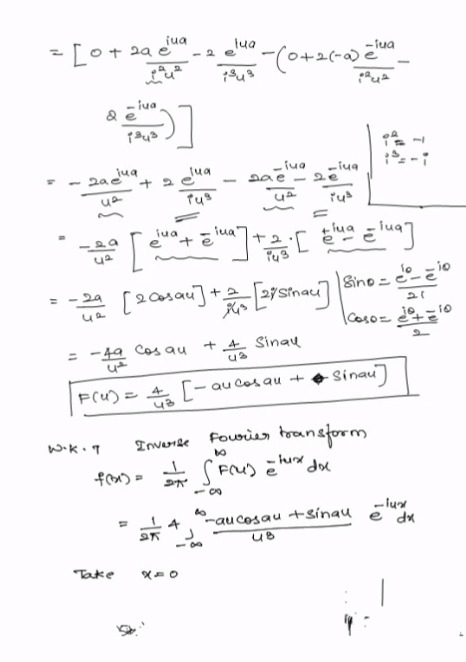 = [0 + 2a e^{iua}/i²u² - 2 e^{iua}/i³u³ - (0+2(-a) e^{-iua}/i²u² -
2 e^{-iua}/i³u³)]
i² = -1
i³ = -i
= - 2ae^{iua}/u² + 2 e^{iua}/iu³ - 2ae^{-iua}/u² - 2e^{-iua}/iu³
= -2a/u² [e^{iua} + e^{-iua}] + 2/iu³ · [e^{iua} - e^{-iua}]
= -2a/u² [2 cosau] + 2/iu³ [2i sinau]
Sinθ = e^{iθ} - e^{-iθ}/2i
Cosθ = e^{iθ} + e^{-iθ}/2
= -4a/u² cos au + 4/u³ Sinau
F(u) = 4/u³ [-au cos au + Sinau]
W.K.T Inverse Fourier transform
f(x) = 1/2π ∫_{-∞}^{∞} F(u) e^{-iux} dx
= 1/2π 4 ∫_{-∞}^{∞} -au cosau + sinau/u3 e^{-iux} dx
Take x=0